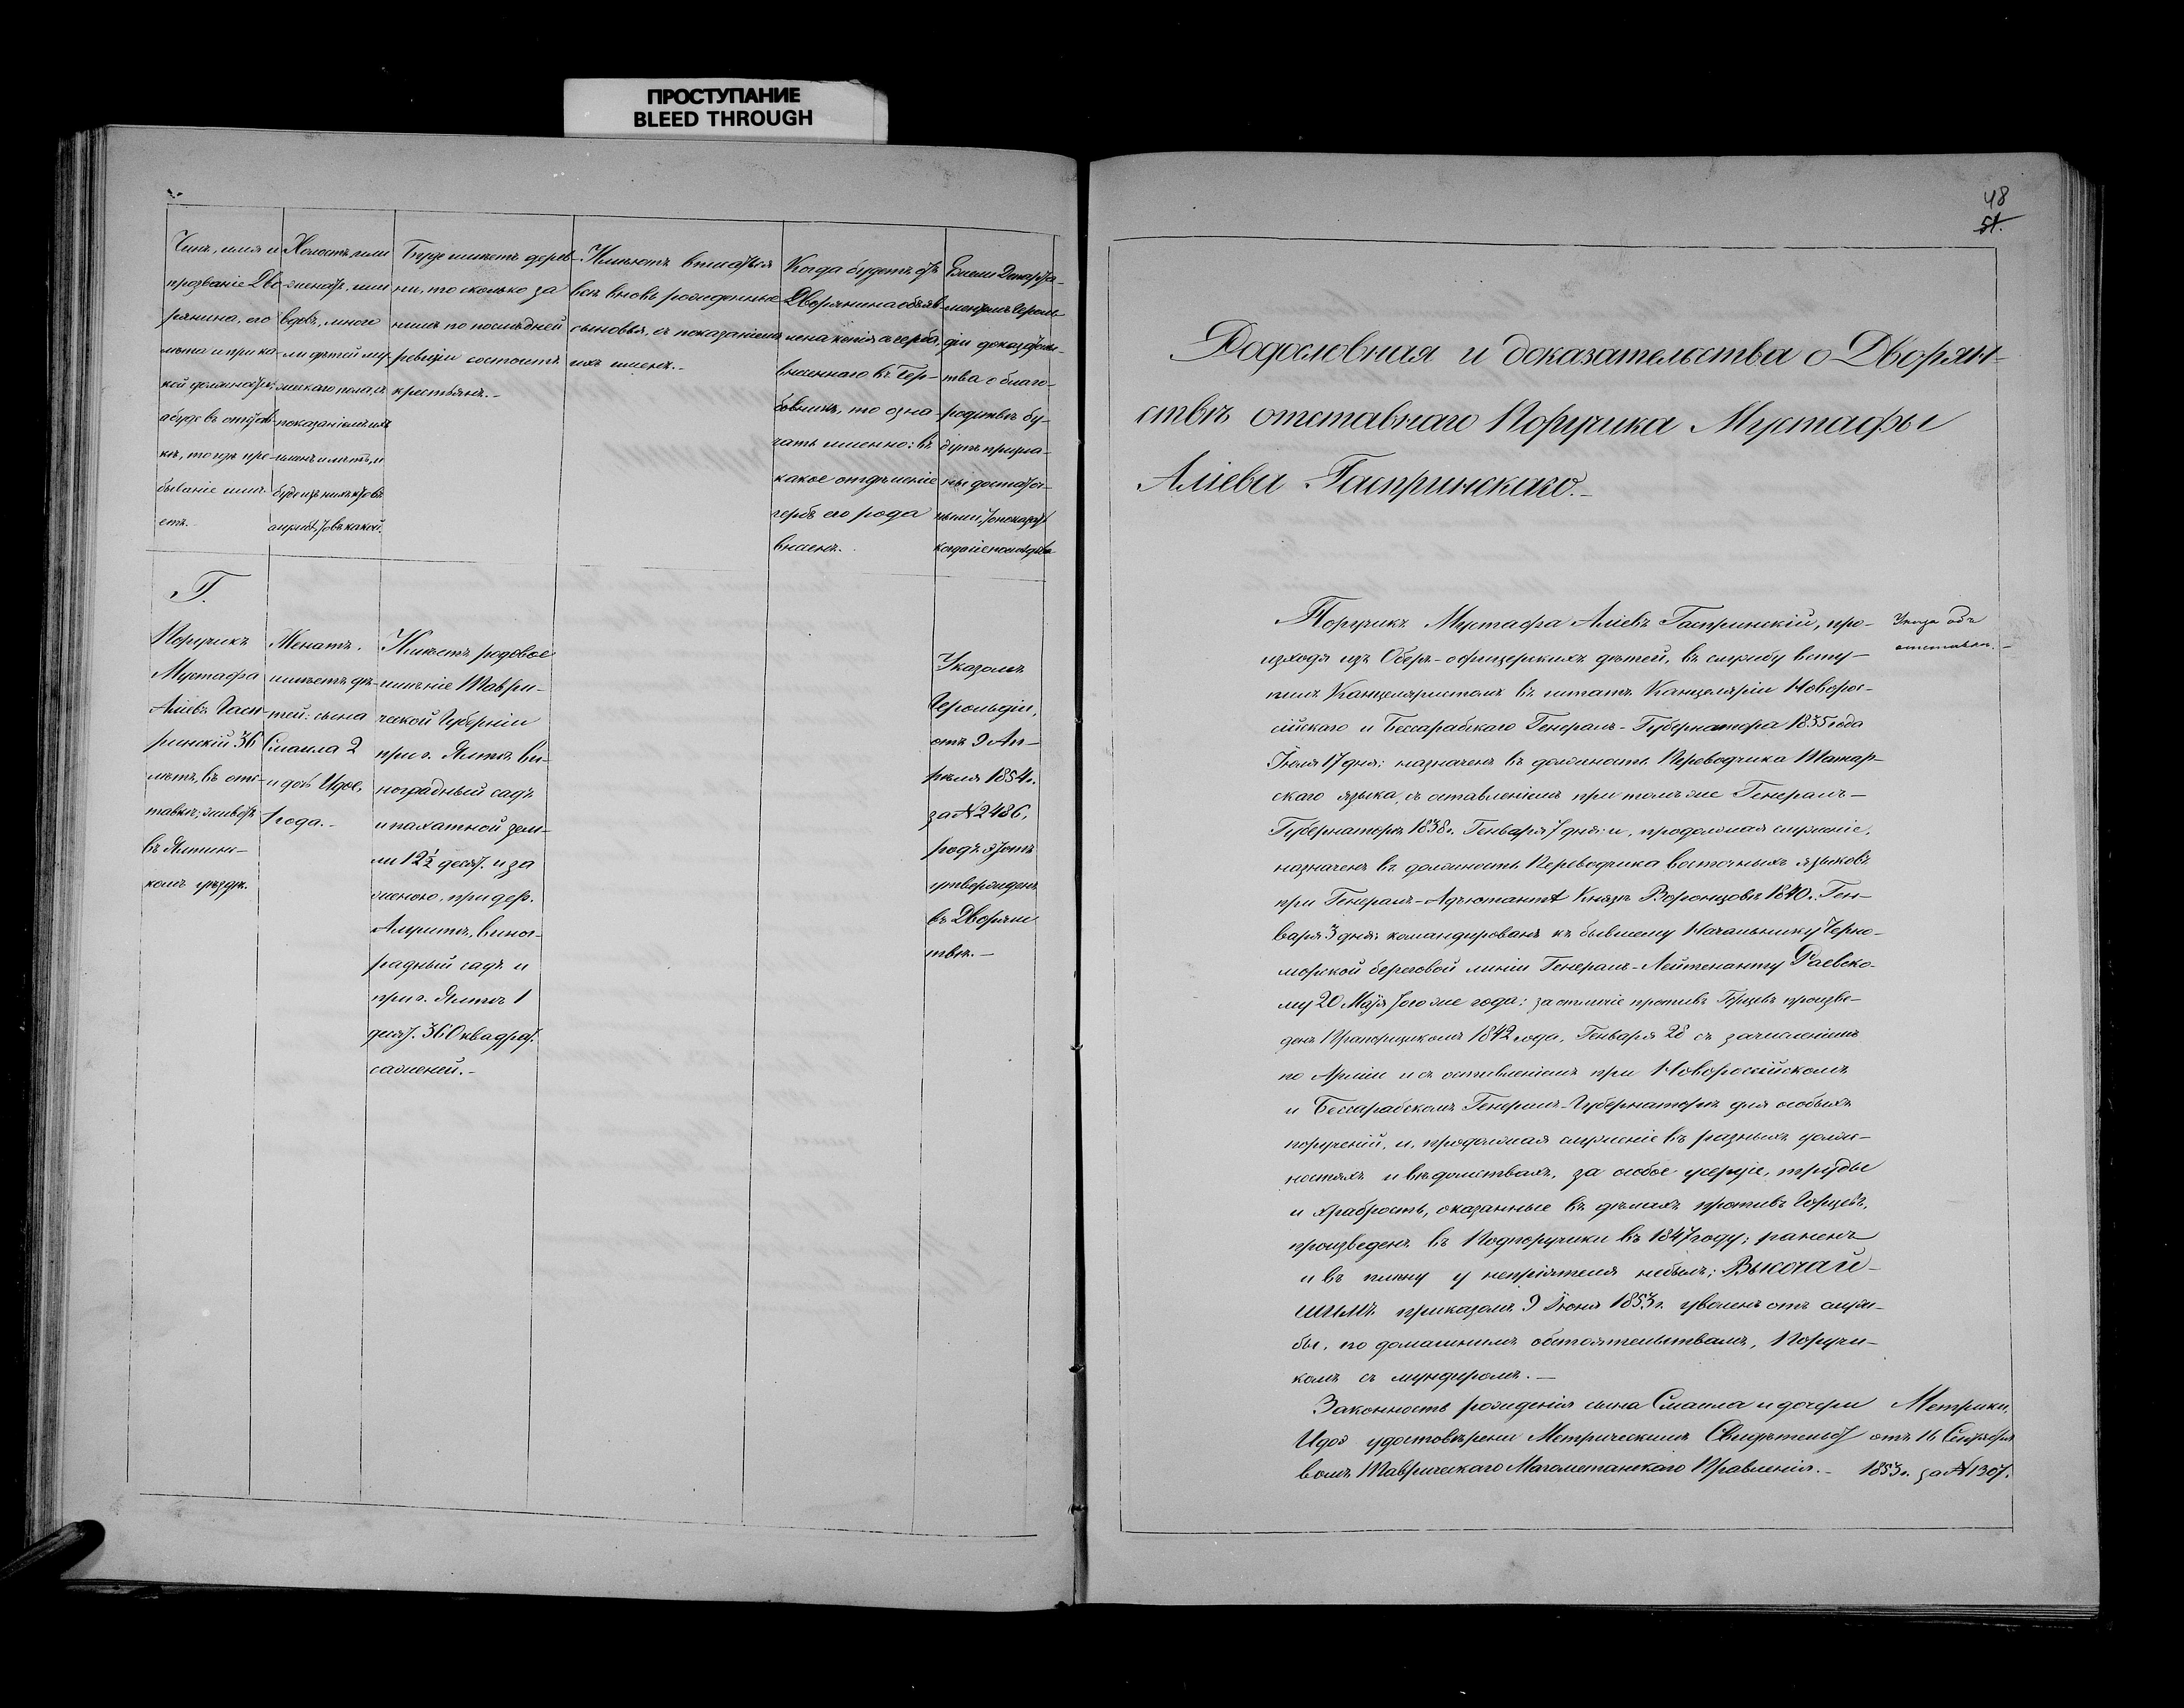 ПРОСТУПАНИЕ
BLEED THROUGH
Чинъ, имя и
прозваніе Дво-
рянина, его
лѣта и при ка-
кой должности,
а буде въ отстав-
кѣ, то гдѣ пре-
бываніе имѣ-
етъ.
Холостъ или
женатъ, или
вдовъ, много
ли дѣтей му-
жескаго пола, съ
показаніемъ ихъ
именъ и лѣтъ, и
буде изъ нихъ кто въ
службѣ, то въ какой.
Буде имѣетъ дерев-
ни, то сколько за
нимъ по послѣдней
ревизіи состоитъ
крестьянъ.-
Имѣютъ вписаться
всѣ вновь рожденные
сыновья, съ показаніемъ
ихъ именъ.-
Когда будетъ отъ
Дворянина объяв-
лена копія съ герба,
внесеннаго въ Гер-
бовникъ, то озна-
чать именно: въ
какое отдѣленіе
гербъ его рода
внесенъ.
Ежели Департа-
ментомъ Героль-
діи доказатель-
тва о благо-
родствѣ бу-
дутъ призна-
ны достаточ-
ными, то показать
когда и
Г.
Поручикъ
Мустафа
Аліевъ Гасп-
ринскій 36
лѣтъ, въ отс-
тавкѣ; живетъ
въ Ялтинс-
комъ уѣздѣ.
Женатъ.
имѣетъ дѣ-
тей: сына
Смаила 2
и дочь Идое,
1 года.-
Имѣетъ родовое
имѣніе Таври-
ческой Губерніи
при г. Ялтѣ ви-
ноградный садъ
и пахатной зем-
ли 12½ десят. и за
женою, при дер.
Алупкѣ, виног-
радный садъ и
при г. Ялтѣ 1
десят. 360 квадрат.
саженей.-
Указомъ
Герольдіи,
отъ 9 Ап-
рѣля 1854 г.
за № 2486,
родъ этотъ
утвержденъ
въ Дворянс-
твѣ.-
48
51.
Родословная и доказательства о Дворян-
ствѣ отставнаго Поручика Мустафы
Аліева Гаспринскаго.-
Поручикъ Мустафа Аліевъ Гаспринскій, про-
изходя изъ Оберъ-офицерскихъ дѣтей, въ службу всту-
пилъ Канцеляристомъ въ штатъ Канцеляріи Новорос-
сійскаго и Бессарабскаго Генералъ-Губернатора 1835 года
Іюля 17 дня; назначенъ въ должность Переводчика Татар-
скаго языка, съ оставленіемъ при томъ же Генералъ-
Губернаторѣ 1838 г. Генваря 7 дня: и, продолжая служеніе,
назначенъ въ должность Переводчика восточныхъ языковъ
при Генералъ-Адъютантѣ Князѣ Воронцовѣ 1840 г. Ген-
варя 3 дня; командированъ къ бывшему Начальнику Черно-
морской береговой линіи Генералъ-Лейтенанту Раевско-
му 20 Мая того же года; за отличіе противъ Горцевъ произве-
денъ Прапорщикомъ 1842 года, Генваря 28 съ зачисленіемъ
по Арміи и съ оставленіемъ при Новороссійскомъ
и Бессарабскомъ Генералъ-Губернаторѣ для особыхъ
порученій, и, продолжая служеніе въ разныхъ долж-
ностяхъ и вѣдомствахъ, за особое усердіе, труды
и храбрость, оказанные въ дѣлахъ противъ Горцевъ,
произведенъ въ Подпоручики въ 1847 году; раненъ
и въ плѣну у непріятеля небылъ; Высочай-
шимъ приказомъ 9 Іюня 1853 г. уволенъ отъ служ-
бы, по домашнимъ обстоятельствамъ, Поручи-
комъ съ мундиромъ.-
Законность рожденія сына Смаила и дочери
Идое удостовѣрена Метрическимъ Свидѣтельст
вомъ Таврическаго Магометанскаго Правленія.-
Указъ объ
отставкѣ.-
Метрики,
отъ 16 Сентября
1853 г. за № 1307.